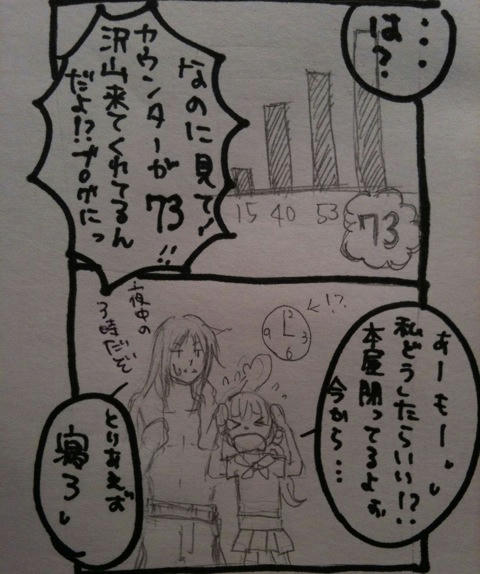 …
は？
なのに見て！
カウンターが
73!!
沢山来てくれてるん
だよ!?ブログにっ
15 40 53 73
あーもー
私どうしたらいい!?
本屋閉ってるよぉ
今から…
!?
9 3 6
夜中の
3時だぞ
とりあえず
寝ろ